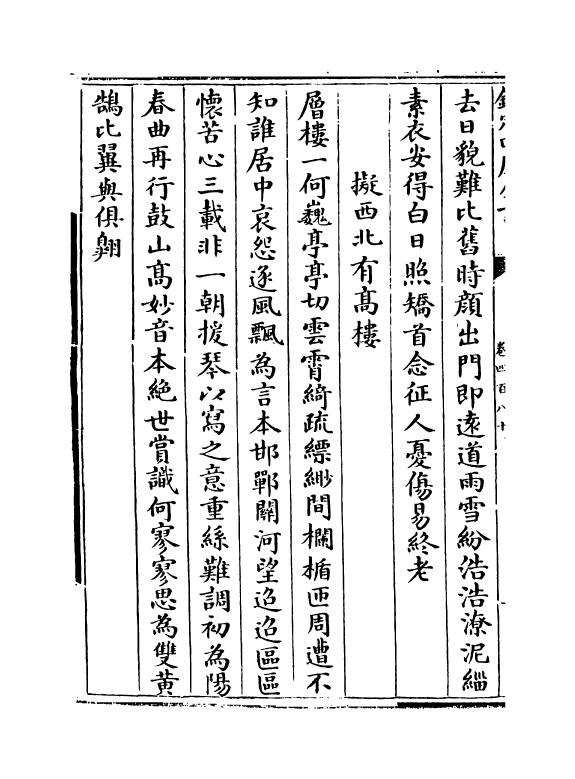 去日貌難比舊時顔出門即遠道雨雪紛浩浩潦泥緇
素衣安得白日照矯首念征人憂傷易終老
擬西北有髙樓
層樓一何巍亭亭切雲霄綺疏縹緲間欄楯匝周遭不
知誰居中哀怨逐風飄為言本邯鄲關河望迢迢區區
懷苦心三載非一朝援琴以寫之意重絲難調初為陽
春曲再行鼓山髙妙音本絶世賞識何寥寥思為雙黄
鵠比翼與俱翺